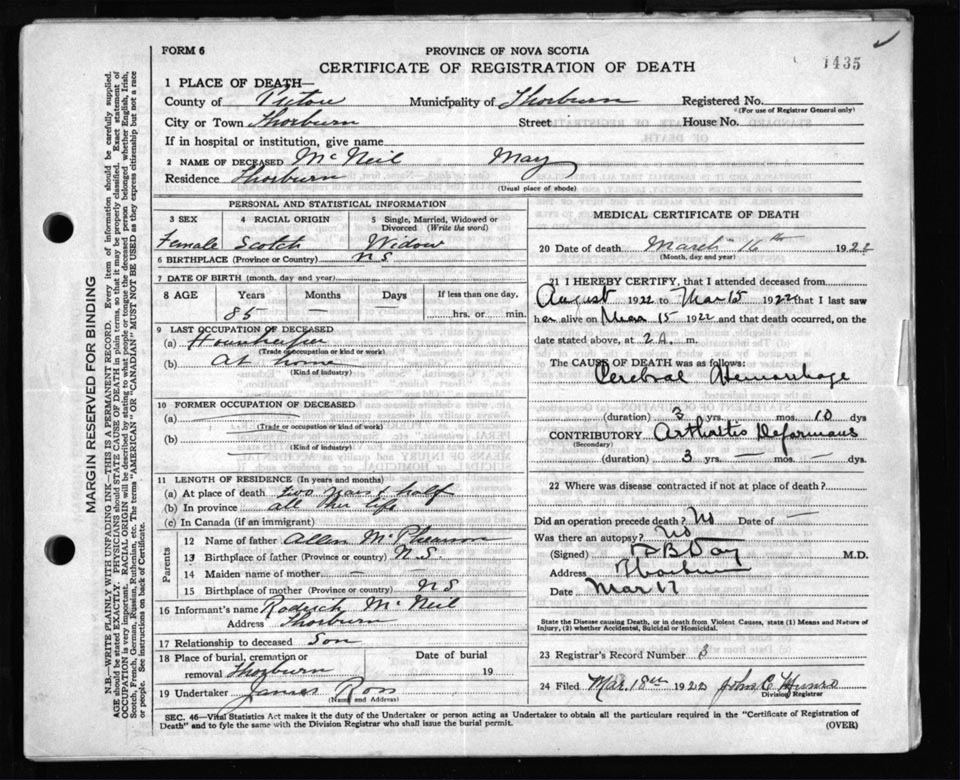 FORM 6
PROVINCE OF NOVA SCOTIA
CERTIFICATE OF REGISTRATION OF DEATH
1435
1 PLACE OF DEATH—
County of Pictou Municipality of Thorburn Registered No.
(For use of Registrar General only)
City or Town Thorburn Street House No.
If in hospital or institution, give name
2 NAME OF DECEASED McNeil May
Residence Thorburn
(Usual place of abode)
PERSONAL AND STATISTICAL INFORMATION
3 SEX 4 RACIAL ORIGIN 5 Single, Married, Widowed or Divorced (Write the word)
Female Scotch Widow
6 BIRTHPLACE (Province or Country) N S
7 DATE OF BIRTH (month, day and year)
8 AGE Years Months Days If less than one day,
85 — hrs. or min.
9 LAST OCCUPATION OF DECEASED
(a) Housekeeper
(Trade or occupation or kind or work)
(b) At home
(Kind of industry)
10 FORMER OCCUPATION OF DECEASED
(a)
(Trade or occupation or kind or work)
(b)
(Kind of industry)
11 LENGTH OF RESIDENCE (In years and months)
(a) At place of death two years half
(b) In province all her life
(c) In Canada (if an immigrant)
Parents
12 Name of father Allen McPherson
13 Birthplace of father (Province or country) N.S.
14 Maiden name of mother —
15 Birthplace of mother (Province or country) N S
16 Informant's name Rodrick McNeil
Address Thorburn
17 Relationship to deceased Son
18 Place of burial, cremation or removal Thorburn Date of burial 19
19 Undertaker James Ross
(Name and Address)
MEDICAL CERTIFICATE OF DEATH
20 Date of death March 16th 1922
(Month, day and year)
21 I HEREBY CERTIFY, that I attended deceased from
August 1922 to Mar 15 1922 that I last saw
her alive on Mar 15 1922 and that death occurred, on
date stated above, at 2 A. m.
The CAUSE OF DEATH was as follows:
Cerebral Hemorrhage
(duration) 3 yrs. mos. 10 dys
CONTRIBUTORY Arthritis Deformans
(Secondary)
(duration) 3 yrs. — mos. — dys.
22 Where was disease contracted if not at place of death?
Did an operation precede death? No Date of —
Was there an autopsy? No
(Signed) Day M.D.
Address Thorburn
Date Mar 17
State the Disease causing Death, or in death from Violent Causes, state (1) Means and Nature of
Injury, (2) whether Accidental, Suicidal or Homicidal.
23 Registrar's Record Number 8
24 Filed Mar. 18th 1922 John C
Division Registrar
SEC. 46—Vital Statistics Act makes it the duty of the Undertaker or person acting as Undertaker to obtain all the particulars required in the "Certificate of Registration of
Death" and to fyle the same with the Division Registrar who shall issue the burial permit.
(OVER)
MARGIN RESERVED FOR BINDING
N.B.—WRITE PLAINLY WITH UNFADING INK—THIS IS A PERMANENT RECORD. Every item of information should be carefully supplied.
AGE should be stated EXACTLY. PHYSICIANS should STATE CAUSE OF DEATH in plain terms, so that it may be properly classified. Exact statement of
OCCUPATION is very important. RACIAL ORIGIN will be described by stating to what people or tongue the deceased person belonged whether English, Irish,
Scotch, French, German, Russian, Ruthenian, etc. The terms "AMERICAN" OR "CANADIAN" MUST NOT BE USED as they express citizenship but not a race
or people. See instructions on back of Certificate.